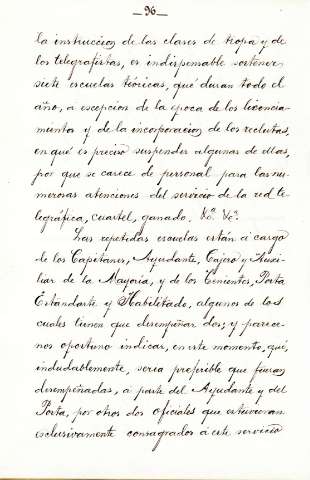 _96_
la instruccion de las clases de tropa y de
los telegrafistas, es indispensable sostener
siete escuelas teóricas, qué duran todo el
año, a escepcion de la epoca de los licencia-
mientos y de la incorporacion de los reclutas,
en qué es preciso suspender algunas de ellas,
por que se carece de personal para las nu-
merosas atenciones del servicio de la red te-
legráfica, cuartel, ganado, &ª. &ª.
Las repetidas escuelas están á cargo
de los Capitanes, Ayudante, Cajero y Auxi-
liar de la Mayoría, y de los Tenientes, Porta
Estandarte y Habilitado, algunos de los
cuales tienen que desempeñar dos; y parece-
nos oportuno indicar, en este momento, qué,
indudablemente, seria preferible que fueran
desempeñadas, a parte del Ayudante y del
Porta, por otros dos oficiales que estuvieran
esclusivamente consagrados á este servicio